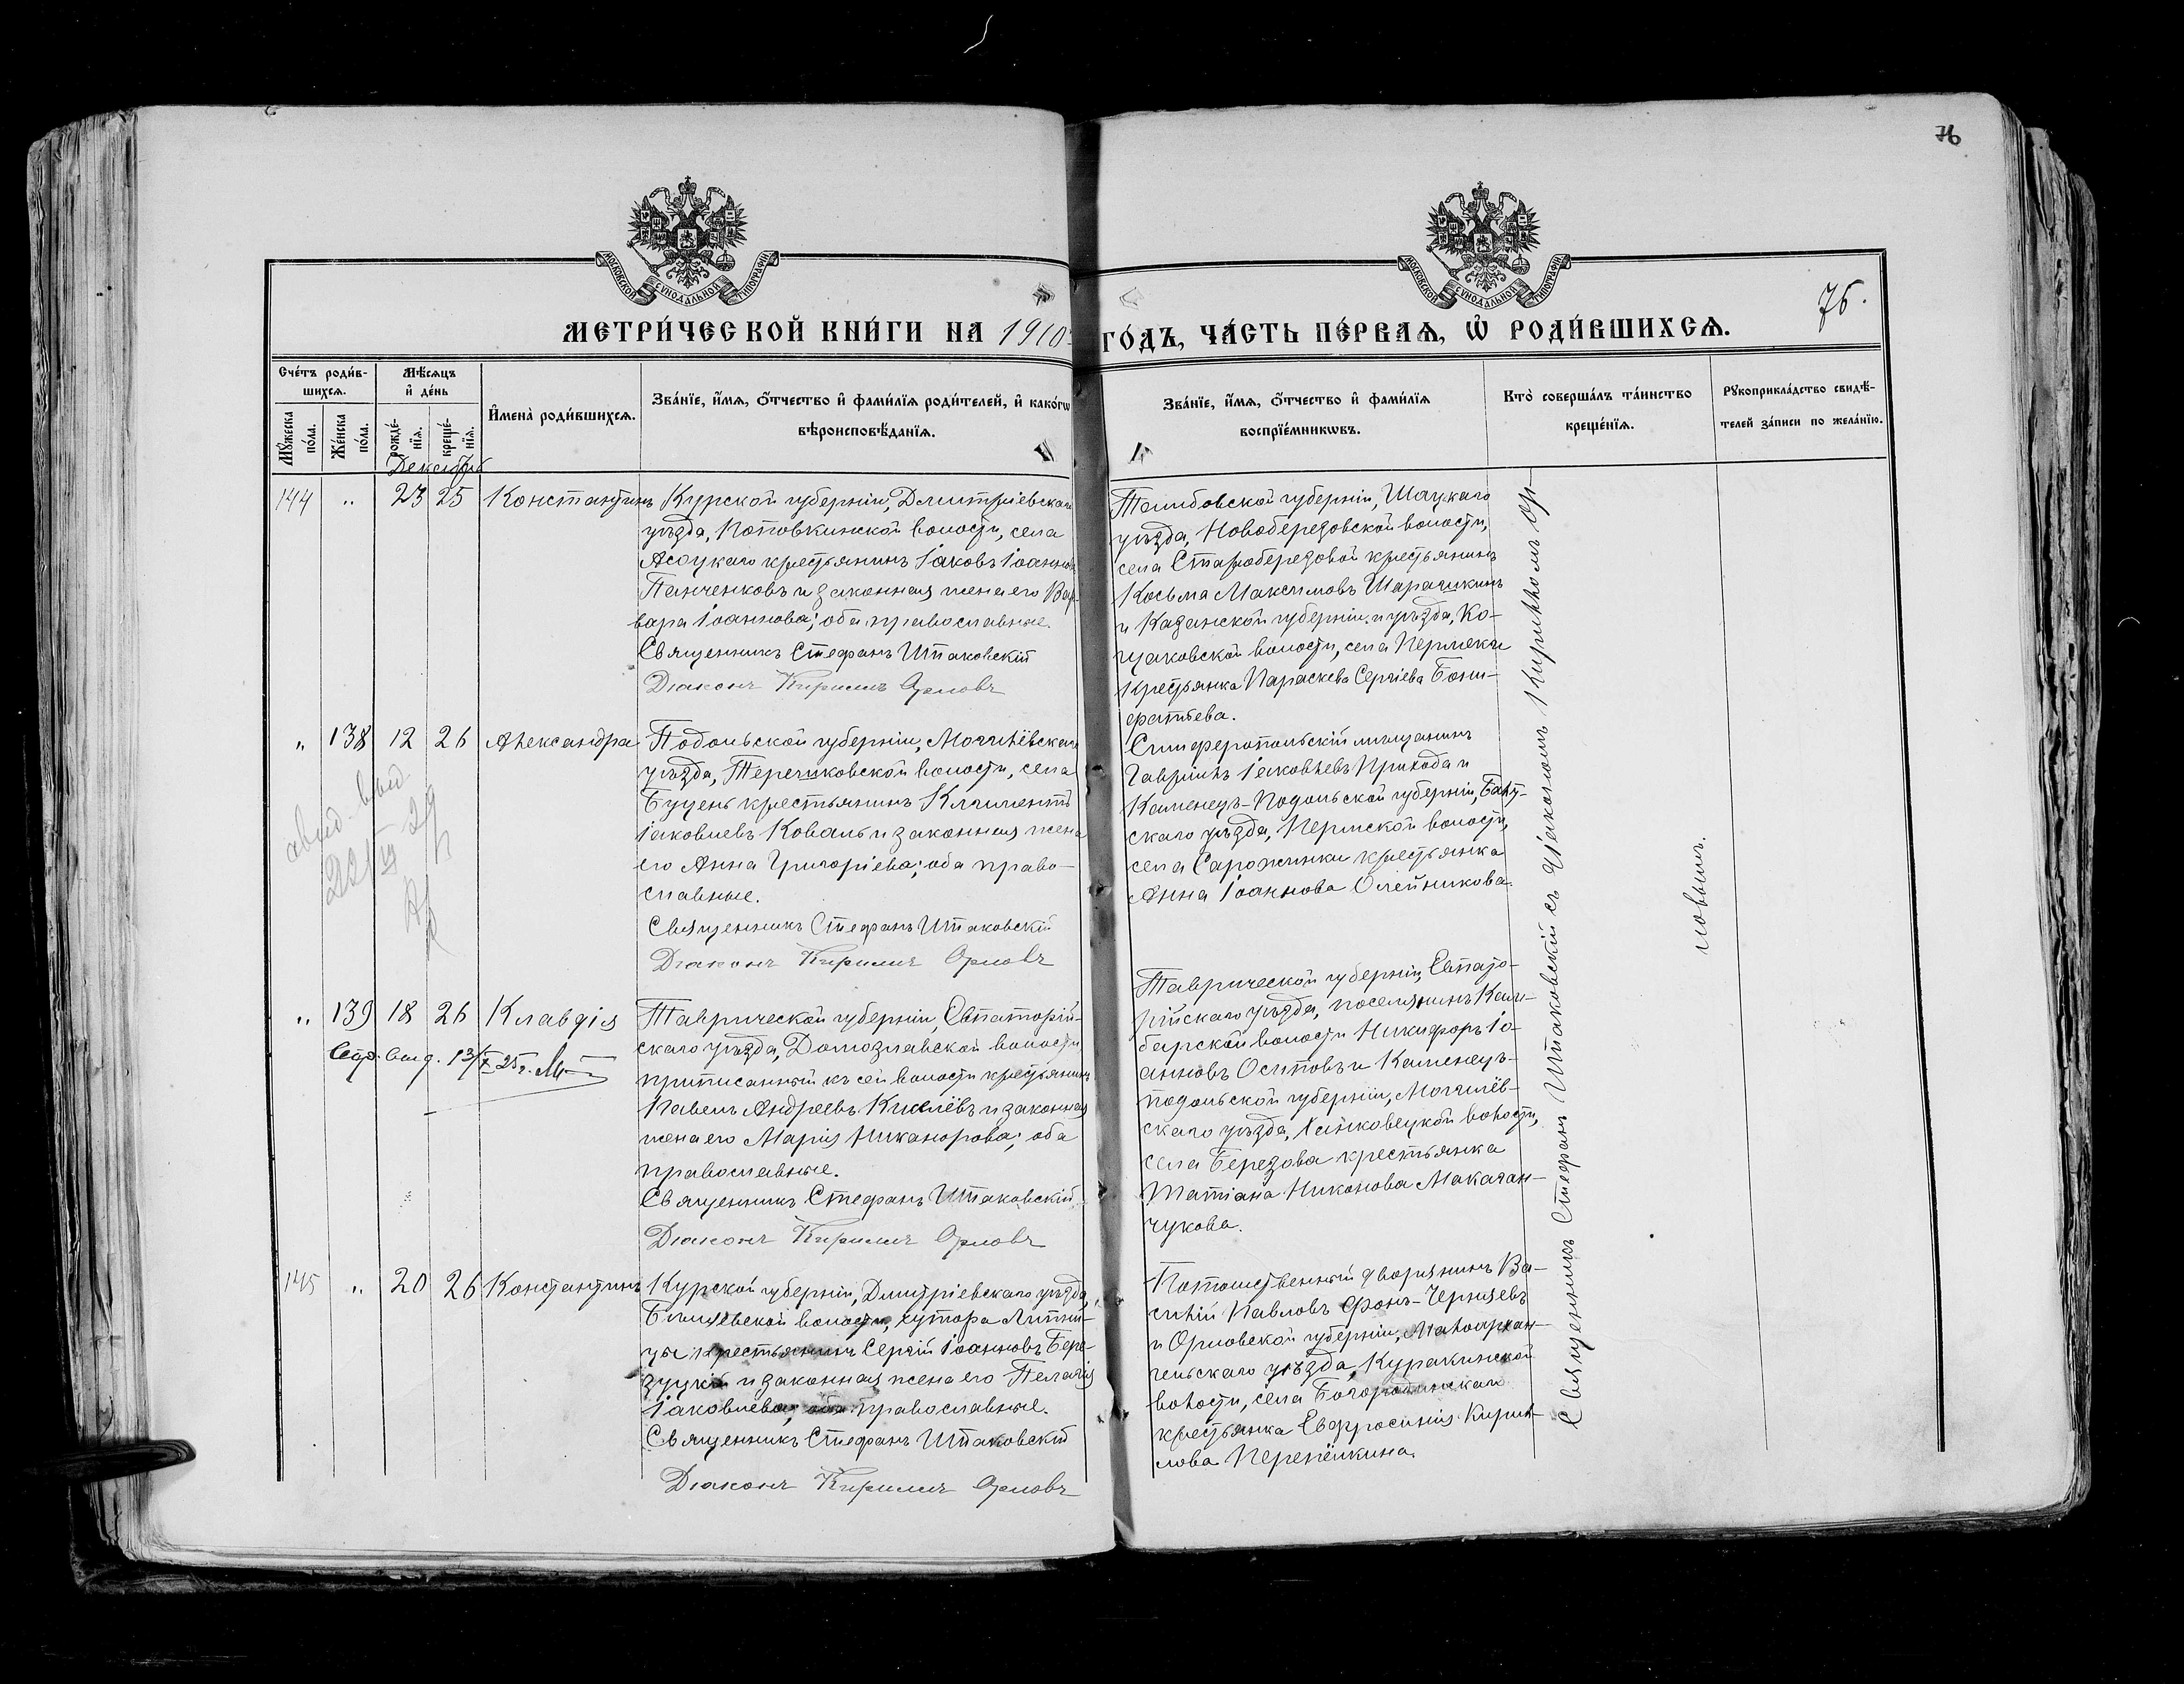 76
МОСКОВСКОЙ СѴНОДАЛЬНОЙ ТИПОГРАФІИ
МОСКОВСКОЙ СѴНОДАЛЬНОЙ ТИПОГРАФІИ
76.
МЕТРИ́ЧЕСКОЙ КНИ́ГИ НА 1910 ГО́ДЪ, ЧА́СТЬ ПЕ́РВАѦ, Ѡ҆ РОДИ́ВШИХСѦ.
Сче́тъ роди́в-
шихсѧ.
Мꙋ́жеска по́ла.
Же́нска по́ла.
Мѣ́сѧцъ
и҆ де́нь
рожде́-
нїѧ.
креще́-
нїѧ.
И҆мена̀ роди́вшихсѧ.
Зва́нїе, и҆́мѧ, ѻ҆́тчество и҆ фами́лїѧ роди́телей, и҆ како́гѡ
вѣроисповѣ́данїѧ.
Зва́нїе, и҆́мѧ, ѻ҆́тчество и҆ фами́лїѧ
воспрїе́мникѡвъ.
Кто̀ соверша́лъ та́инство
креще́нїѧ.
Рꙋкоприкла́дство свидѣ́-
телей за́писи по жела́нїю.
Декабрь
144 " 23 25 Константинъ
Курской губерніи, Дмитріевскаго
уѣзда, Поповкинской волости, села
Асоцкаго крестьянинъ Іаковъ Іоанновъ
Панченковъ и законная жена его Вар-
вара Іоаннова; оба православные.
Священникъ Стефанъ Штаковскій
Діаконъ Кириллъ Орловъ
Тамбовской губерніи, Шацкаго
уѣзда, Новоберезовской волости,
села Староберезовой крестьянинъ
Косьма Максимовъ Шарашкинъ
и Казанской губерніи и уѣзда, Ко-
щаковской волости, села Пермяки
крестьянка Параскева Сергіева Бони-
фатьева.
" 138 12 26 Александра
Подольской губерніи, Могилёвскаго
уѣзда, Терешковской волости, села
Буцень крестьянинъ Климентъ
Іаковлевъ Коваль и законная жена
его Анна Григоріева; оба право-
славные.
Священникъ Стефанъ Штаковскій
Діаконъ Кириллъ Орловъ
Симферопольскій мѣщанинъ
Гавріилъ Іаковлевъ Приходa и
Каменецъ-Подольской губерніи, Балт-
скаго уѣзда, Пермской волости,
села Сарожинки крестьянка
Анна Іоаннова Олейникова.
" 139 18 26 Клавдія
выд. 13/X 25г.
Таврической губерніи, Евпаторій-
скаго уѣзда, Донузлавской волости,
приписанный къ сей волости крестьянинъ
Павелъ Андреевъ Киселёвъ и законная
жена его Марія Никанорова; оба
православные.
Священникъ Стефанъ Штаковскій
Діаконъ Кириллъ Орловъ
Таврической губерніи, Евпато-
рійскаго уѣзда, поселянинъ Кам-
барской волости Никифоръ Іо-
анновъ Осиповъ и Каменецъ-
подольской губерніи, Могилёв-
скаго уѣзда, Ханковецкой волости,
села Березова крестьянка
Татіана Никонова Макаган-
чукова.
145 " 20 26 Константинъ
Курской губерніи, Дмитріевскаго уѣзда,
волости, хутора Липни-
цы крестьянинъ Сергій Іоанновъ Бере-
зуцкій и законная жена его Пелагія
Іаковлева; оба православные.
Священникъ Стефанъ Штаковскій
Діаконъ Кириллъ Орловъ
Потомственный дворянинъ Ва-
силій Павловъ фонъ-Черняевъ
и Орловской губерніи, Малоархан-
гельскаго уѣзда, Куракинской
волости, села Богородицкаго
крестьянка Евфросинія Кирил-
лова Перепёлкина.
Священникъ Стефанъ Штаковскій съ діакономъ Кирилломъ Ор-
ловымъ.